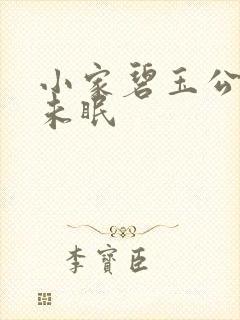 小家碧玉公
未眠
李寶臣